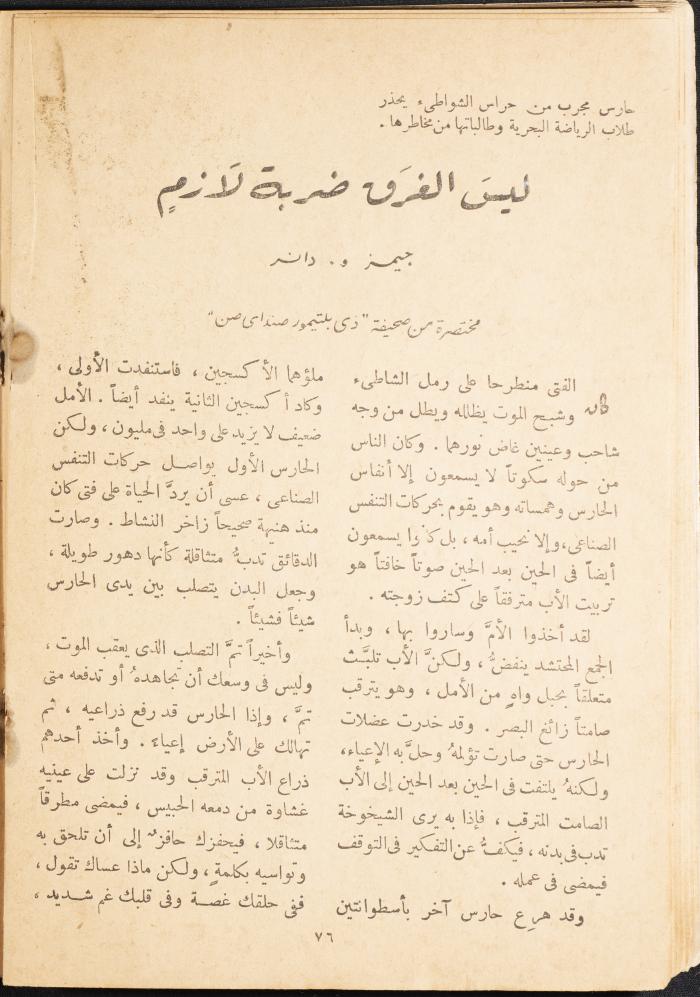 حارس مجرب من حراس الشواطىء يحذر
طلاب الرياضة البحرية وطالباتها من مخاطرها .
ليسَ الغَرَق ضربة لَازمٍ
جيمز و. دانر
مختصرة من صحيفة "ذى بلتيمور صنداى صن"
كان الفتى منطرحا على رمل الشاطىء
وشبح الموت يظلله ويطل من وجه
شاحب وعينين غاض نورهما . وكان الناس
من حوله سكوتاً لا يسمعون إلا أنفاس
الحارس وهمساته وهو يقوم بحركات التنفس
الصناعى، وإلا نحيب أمه ، بل كانوا يسمعون
أيضاً فى الحين بعد الحين صوتاً خافتاً هو
تربيت الأب مترفقاً على كتف زوجته .
لقد أخذوا الأمَّ وساروا بها ، وبدأ
الجمع المحتشد ينفضُّ ، ولكنَّ الأب تلبَّث
متعلقاً بحبل واهٍ من الأمل ، وهو يترقب
صامتاً زائغ البصر . وقد خدرت عضلات
الحارس حتى صارت تؤلمهُ وحلَّ به الإعياء،
ولكنهُ يلتفت فى الحين بعد الحين إلى الأب
الصامت المترقب ، فإذا به يرى الشيخوخة
تدب فى بدنه ، فيكفُّ عن التفكير فى التوقف
فيمضى فى عمله .
وقد هرع حارس آخر بأسطوانتين
ملؤهما الأكسجين ، فاستنفدت الأولى ،
وكاد أكسجين الثانية ينفد أيضاً . الأمل
ضعيف لا يزيد على واحد فى مليون ، ولكن
الحارس الأول يواصل حركات التنفس
الصناعى ، عسى أن يردَّ الحياة على فتى كان
منذ هنيهة صحيحاً زاخر النشاط . وصارت
الدقائق تدبُّ متثاقلة كأنها دهور طويلة ،
وجعل البدن يتصلب بين يدى الحارس
شيئاً فشيئاً .
وأخيراً تمَّ التصلب الذى يعقب الموت ،
وليس فى وسعك أن تجاهدهُ أو تدفعه متى
تمَّ ، وإذا الحارس قد رفع ذراعيه ، ثم
تهالك على الأرض إعياءً . وأخذ أحدهم
ذراع الأب المترقب وقد نزلت على عينيه
غشاوة من دمعه الحبيس ، فيمضى مطرقاً
متثاقلا ، فيحفزك حافزٌ إلى أن تلحق به
وتواسيه بكلمةٍ ، ولكن ماذا عساك تقول ،
ففى حلقك غصة وفى قلبك غم شديد ،
٧٦